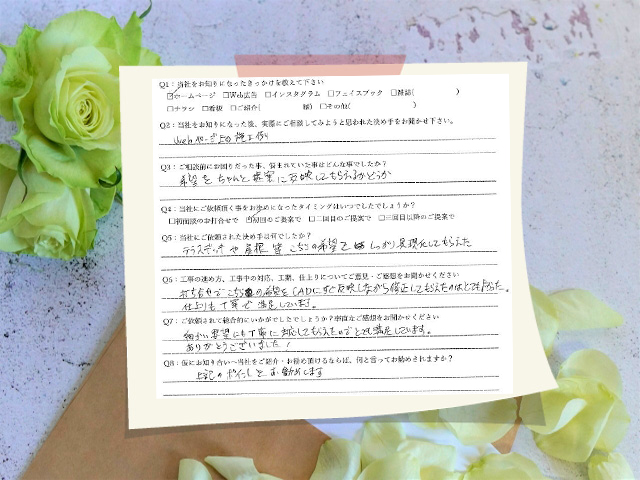 Q1：当社をお知りになったきっかけを教えて下さい
☑ホームページ □Web広告 □インスタグラム □フェイスブック □雑誌( )
□チラシ □看板 □ご紹介( 様) □その他( )
Q2：当社をお知りになった後、実際にご相談してみようと思われた決め手をお聞かせ下さい。
Webページ上の施工例
Q3：ご相談前にお困りだった事、悩まれていた事はどんな事でしたか？
希望をちゃんと提案に反映してもらえるかどうか
Q4：当社にご依頼頂く事をお決めになったタイミングはいつでしたでしょうか？
□初面談のお打合せで ☑初回のご提案で □二回目のご提案で □三回目以降のご提案で
Q5：当社にご依頼された決め手は何でしたか？
テラスデッキや屋根等こちらの希望をしっかり具現化してもらえた
Q6：工事の進め方、工事中の対応、工期、仕上りについてご意見・ご感想をお聞かせください
打ち合わせでこちらの希望をCADにすぐ反映しながら修正してもらえたのはとても良かった。
仕上りも丁寧で満足しています。
Q7：ご依頼されて総合的にいかがでしたでしょうか？率直なご感想をお聞かせください
細かい要望にも丁寧に対応してもらえたのでとても満足しています。
ありがとうございました！
Q8：仮にお知り合いへ当社をご紹介・お奨め頂けるならば、何と言ってお勧めされますか？
上記のポイントをお勧めします